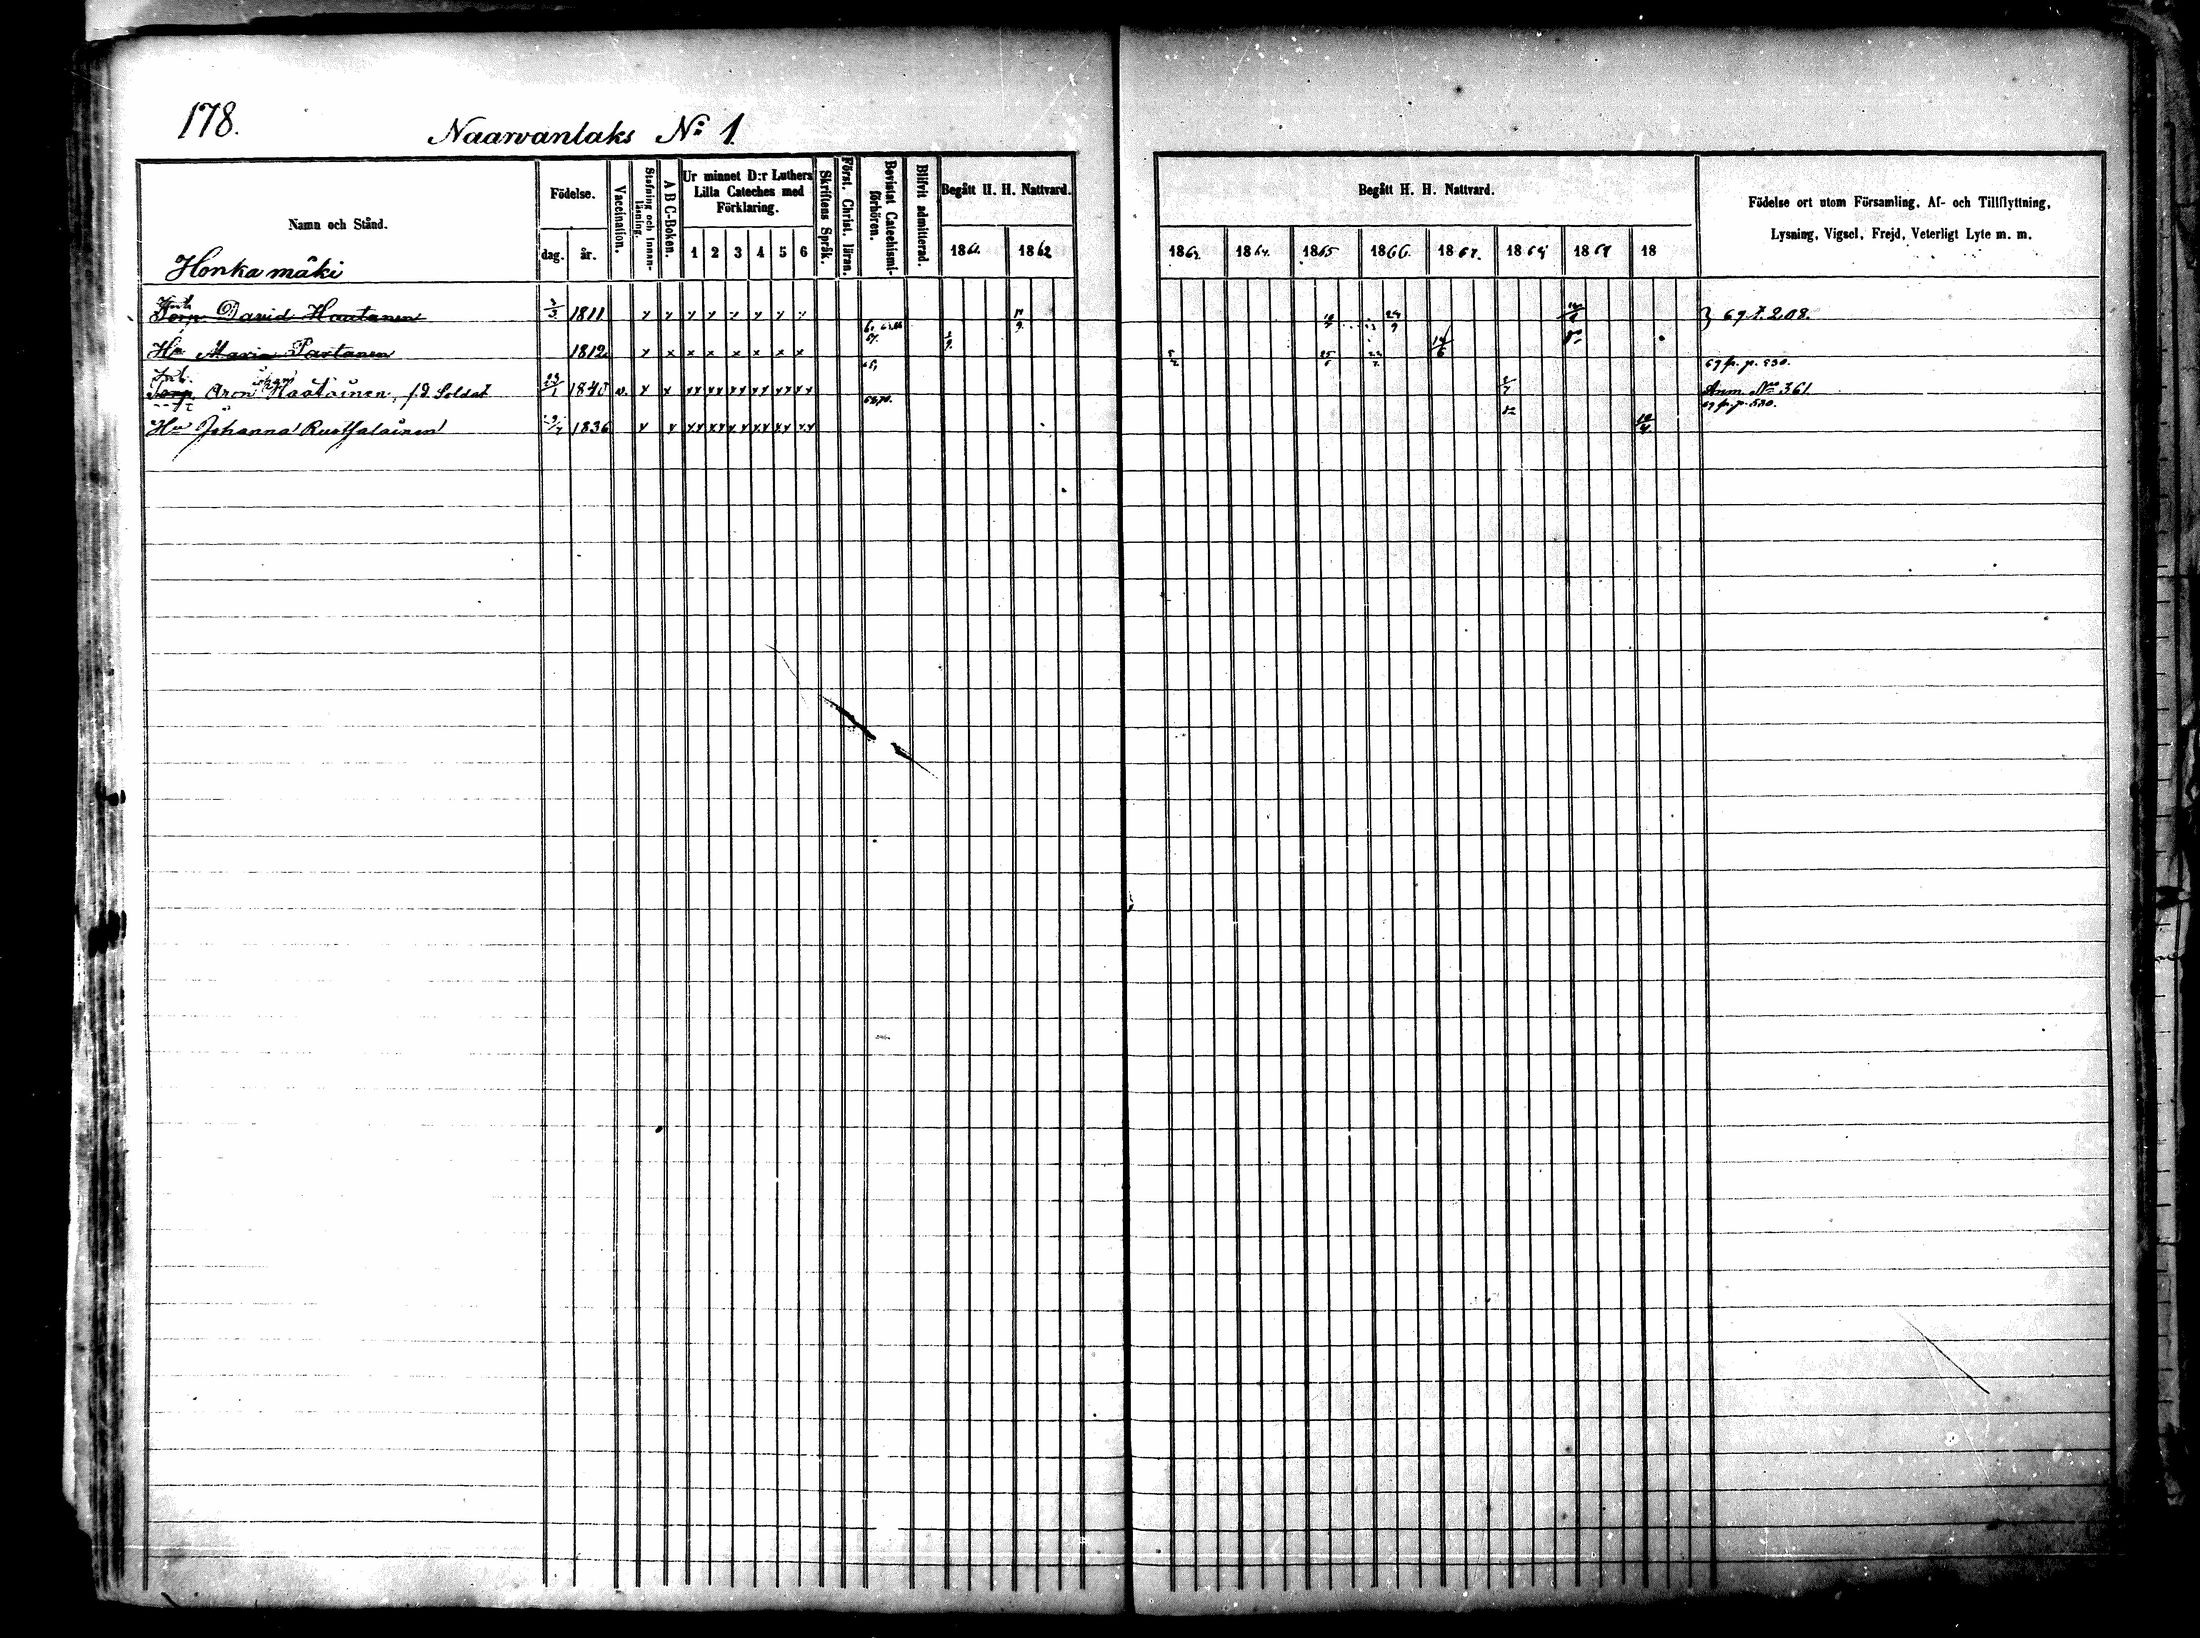 178.
Naarvanlaks No 1.
Namn och Stånd.
Födelse.
dag.
år.
Vaccination.
Stafning och Innanläsning.
A B C-Boken.
Ur minnet D:r Luthers
Lilla Cateches med
Förklaring.
1 2 3 4 5 6
Skriftens Språk.
Först. Christ. läran.
Bevistat Catechismi-
förhören.
Blifvit admitterad.
Begått H. H. Nattvard.
1861. 1862
Begått H. H. Nattvard.
1863. 1864. 1865 1866. 1867. 1868 1869 18
Födelse ort utom Församling, Af- och Tillflyttning,
Lysning, Vigsel, Frejd, Veterligt Lyte m. m.
Honkamäki
Inh.
Torp. David Hautanen 3/3 1811 x x x x x x x x } 69 f. 208.
Hu Maria Partanen 1812 x x x x x x x x
69 fr. p. 530.
Inh.
Torp. Aron Haatainen, f.d. Soldat 1840 v. x x xx xx xx xx xx xx Anm. No 361.
69 fr. p. 530.
Hu Johanna Ruotsalainen 1836 x x xx xx xx xx xx xx